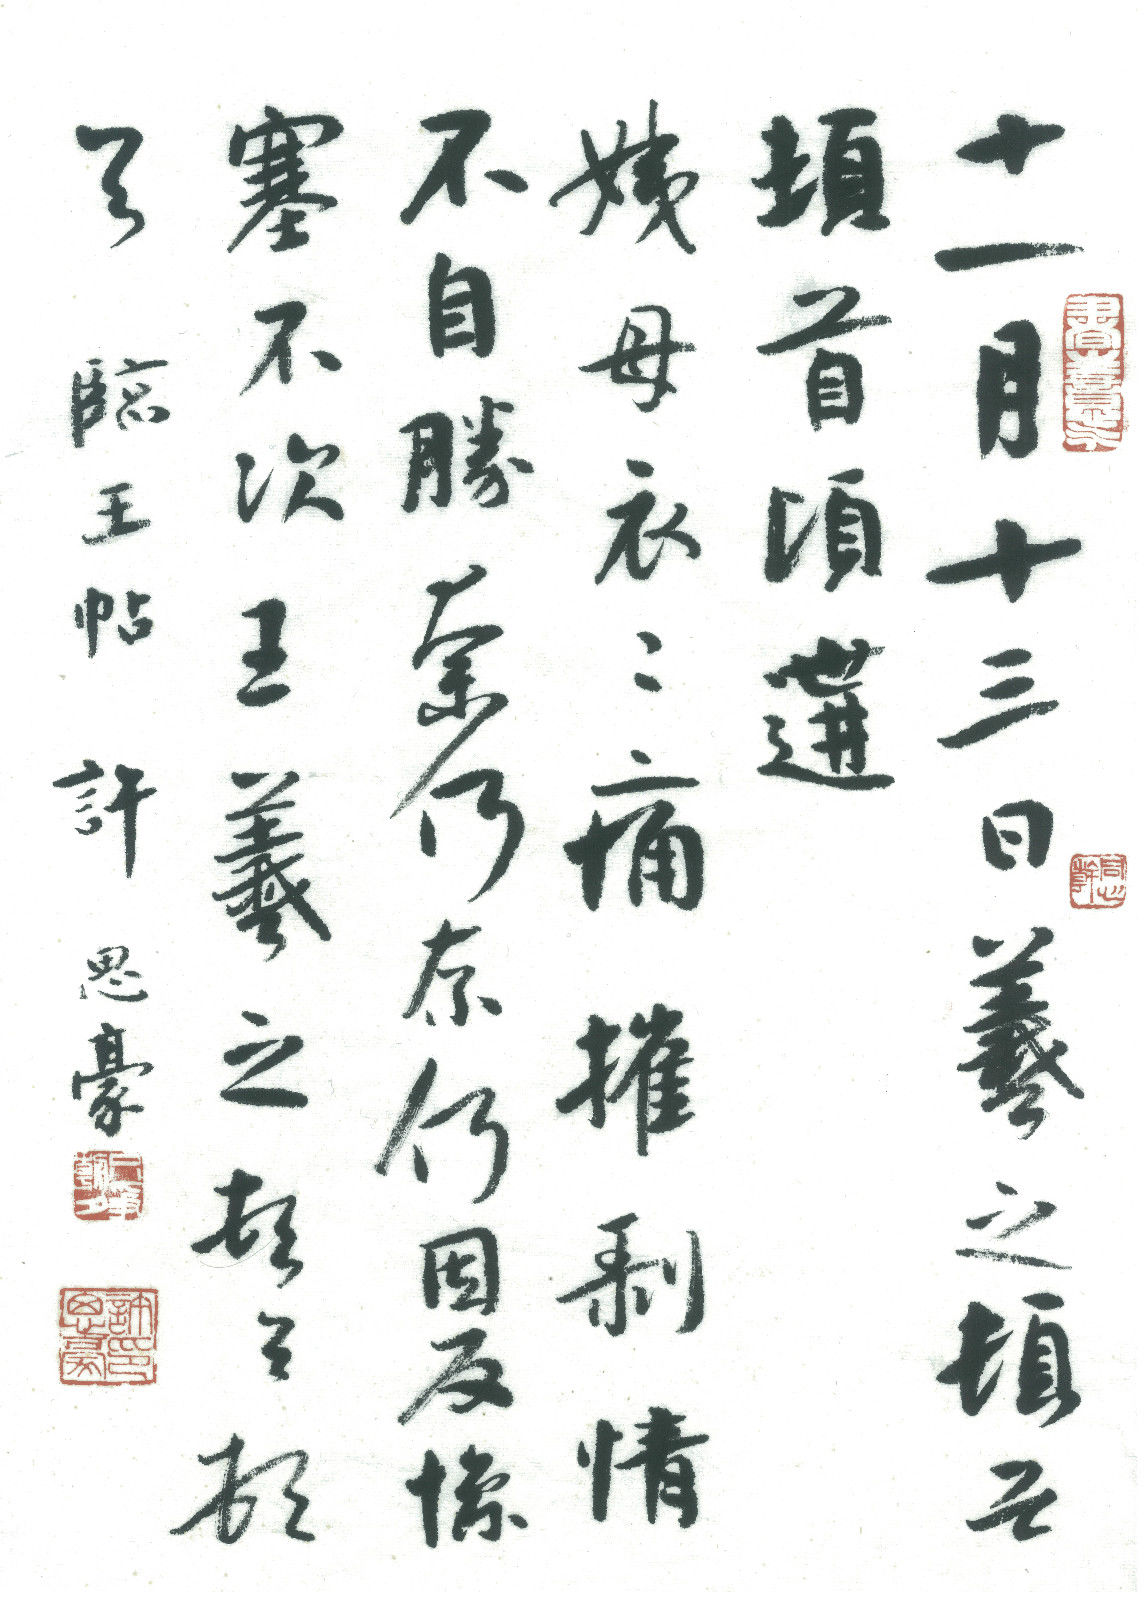 十一月十三日羲之頓首
頓首頃遘
姨母哀〻痛摧剝情
不自勝奈何奈何因反慘
塞不次王羲之頓首頓
首 臨王帖 許思豪
許思豪印